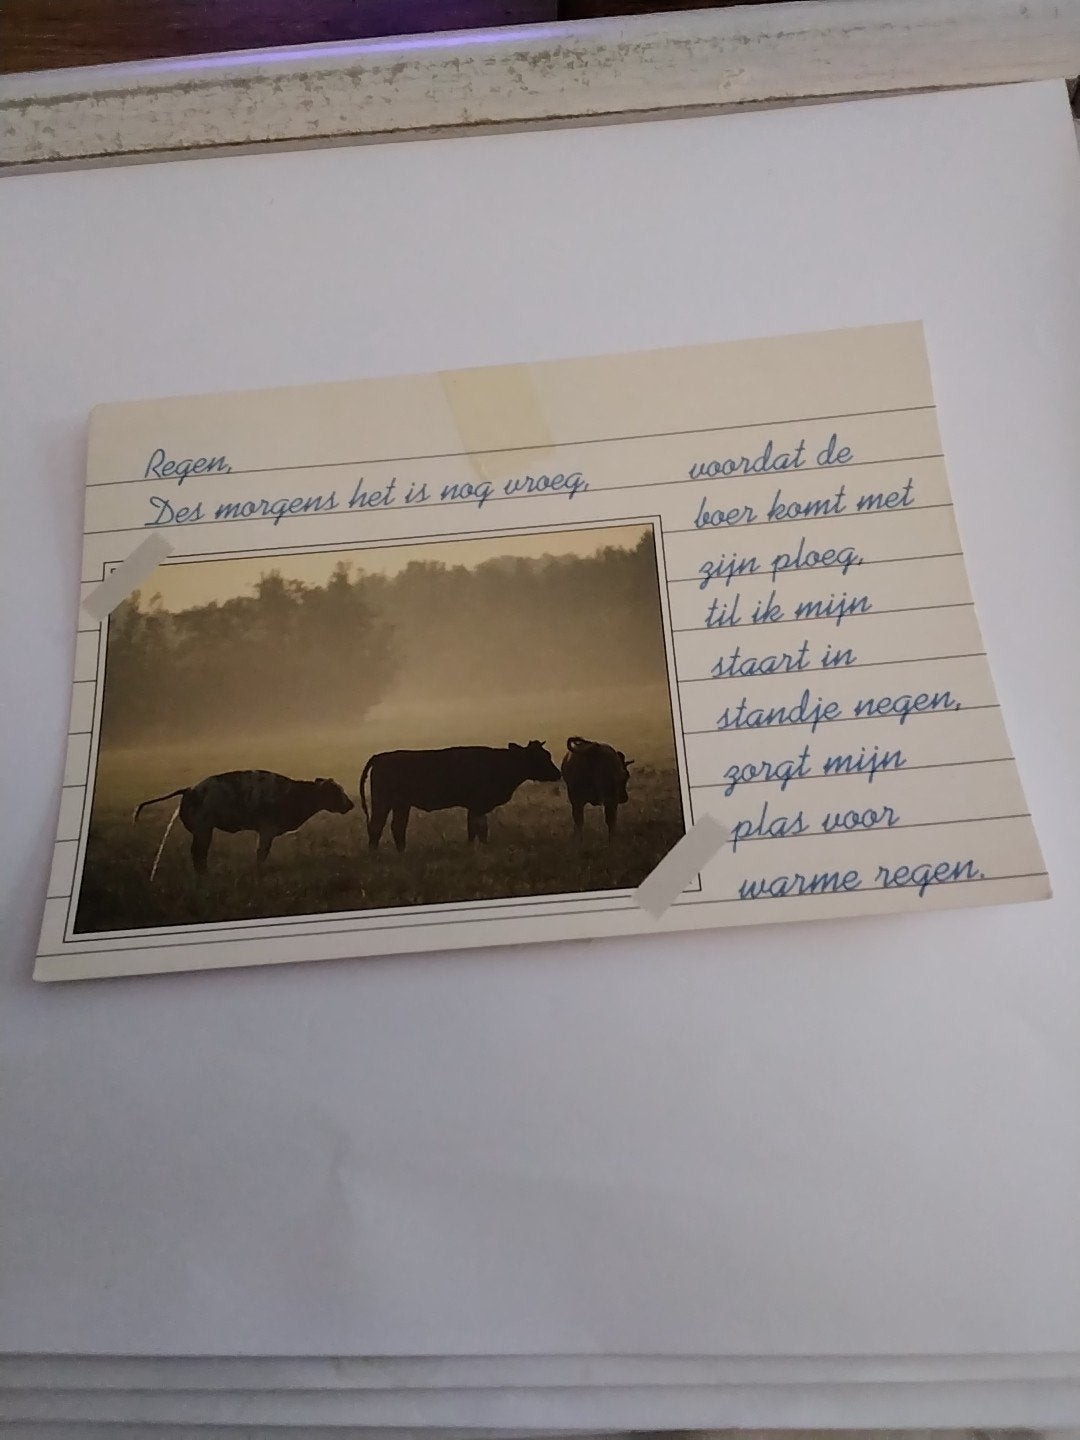 Regen,
Des morgens het is nog vroeg,
voordat de
boer komt met
zijn ploeg,
til ik mijn
staart in
standje negen,
zorgt mijn
plas voor
warme regen.